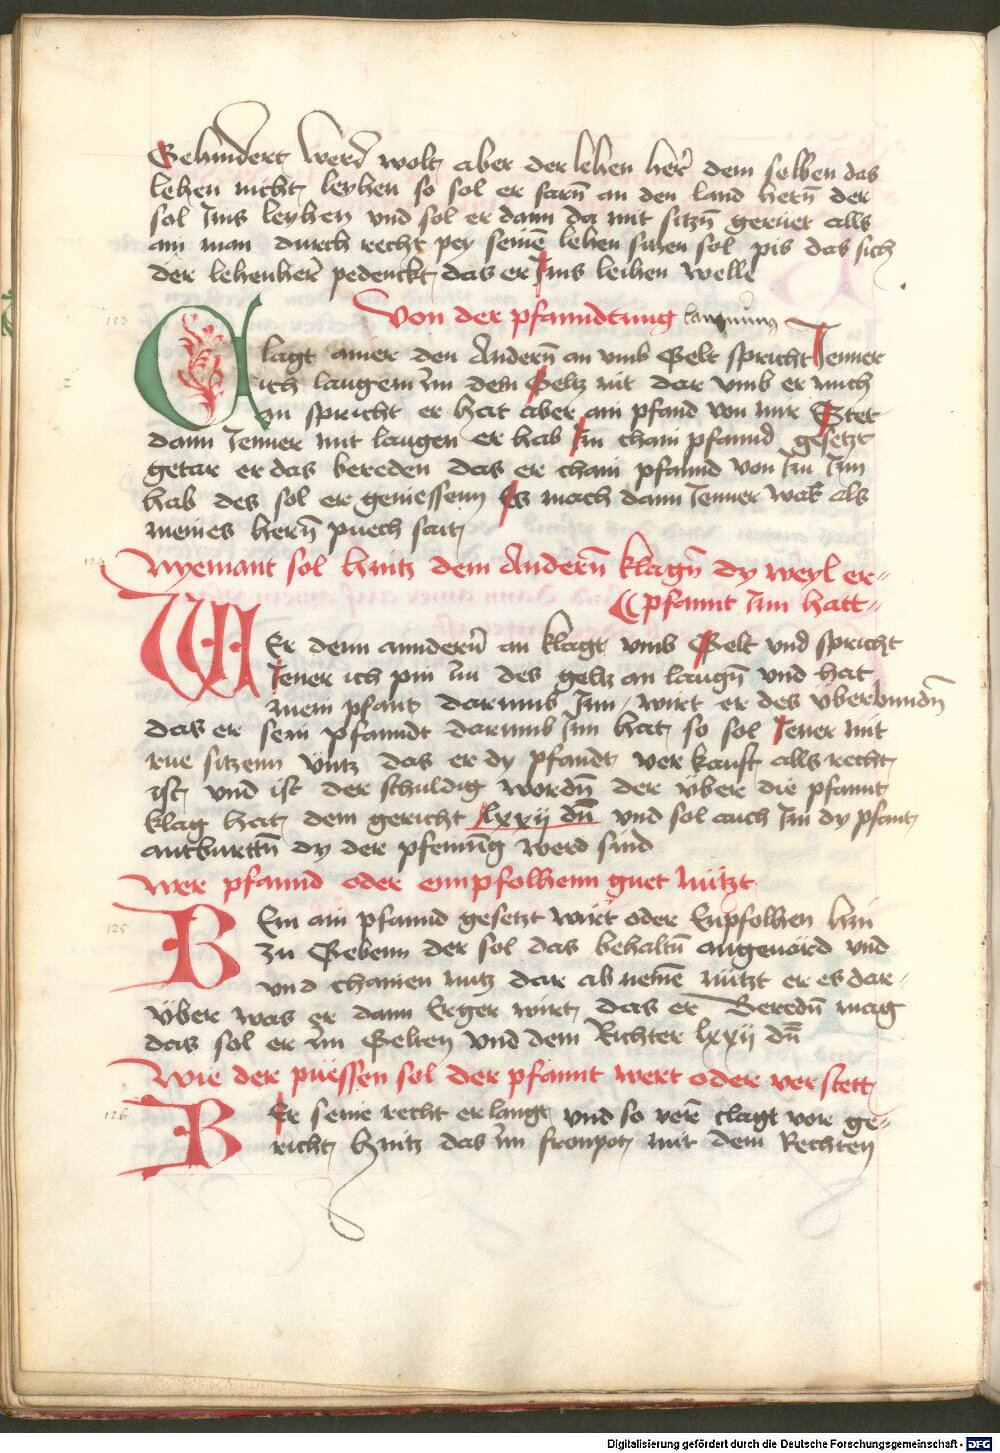 Gehindert werd wolt aber der lehen her̄ dem selben das
lehen nicht leyhen so sol er farn̄ an den land hern̄ der
sol Jms leyhen und sol er dann da mit sitzn̄ geruet alls
ain man durch recht pey seinē lehen sitzen sol pis das sich
der lehenher̄ pedenckt das er Jms leihen welle
123
Von der pfanndtung laugnung
Clagt ainer den Andern̄ an umb Gelt spricht Jenner
ich laugem im dem Geltz nit dar umb er mich
an spricht er hat aber ain pfand von mir Ster
dann Jenner mit laugen er hab Jm chain pfannd gesetzt
getar er das bereden das er chain pfannd von Jm Jnn
hab des sol er geniessenn Es mach dann Jenner war als
meines hern̄ puech sait
124
Nyemant sol hintz dem Andern̄ klagn̄ dy weyl er-
pfannt Jnn hatt
WEr denn anndern̄ an klagt umb Gelt und spricht
Jener ich pin im des geltz an laugn̄ und hat
mein pfant darumb Jnn wirt er des überbundn̄
das er sein pfanndt darumb Jnn hat so sol Jener mit
rue sitzenn üntz das er dy pfandt ver kauft alls recht
ist und ist der schuldig wordn̄ der über die pfannt
klag hat dem gericht lxxij dn̄ und sol auch Jm dy pfant
antburttn̄ dy der pfening werd sind
Wer pfannd oder empfolhenn guet nützt
125
BEm ain pfannd gesetzt wirt oder Enpfolhen hin
zu Gebenn der sol das behaltn̄ angeuard und
und chainen nutz dar ab nemē nützt er es dar-
über was er dann Erger wirt das er Beredn̄ mag
das sol er im Gelten und dem Richter lxxij dn̄
Wie der püessen sol der pfannt wert oder verstett
126
BEr seine recht erlangt und so verr clagt vor ge-
richt hintz das im fronpot mit dem Rechten
Digitalisierung gefördert durch die Deutsche Forschungsgemeinschaft - DFG